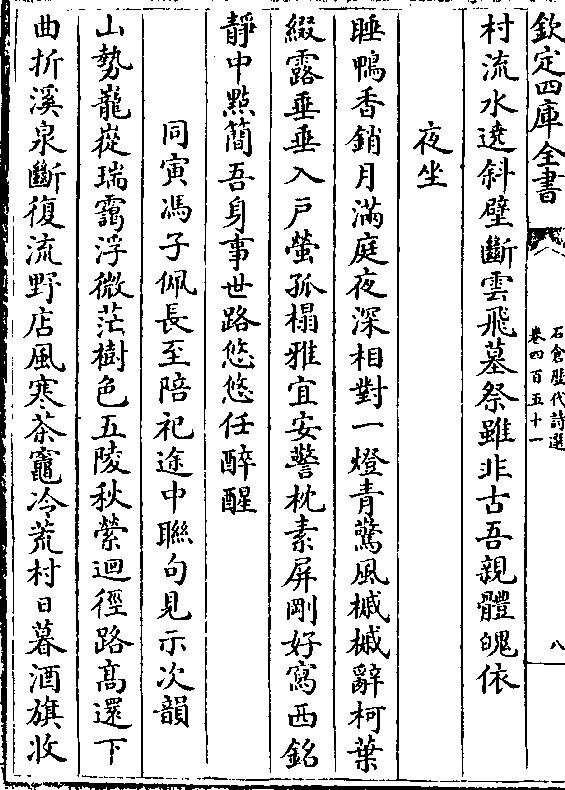 欽定四庫全書
石倉歴代詩選
卷四百五十一
八
村流水遶斜壁斷雲飛墓祭雖非古吾親體魄依
夜坐
睡鴨香銷月滿庭夜深相對一燈青驚風槭槭辭柯葉
綴露垂垂入戸螢孤榻雅宜安警枕素屏剛好寫西銘
靜中㸃簡吾身事世路悠悠任醉醒
同寅馮子佩長至陪祀途中聯句見示次韻
山勢巃嵸瑞靄浮微茫樹色五陵秋縈迴徑路髙還下
曲折溪泉斷復流野店風寒茶竈冷荒村日暮酒旗收